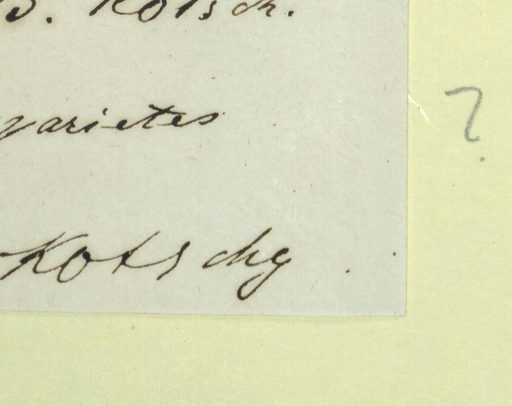 Kotsch.
?
varietes
Kotschy.